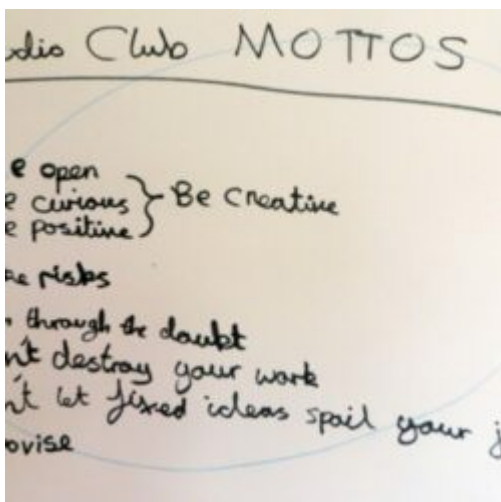 dio Club MOTTOS
e open
e curious } Be Creative
e positive
risks
through the doubt
n't destroy your work
n't let fixed ideas spoil your j
ovise